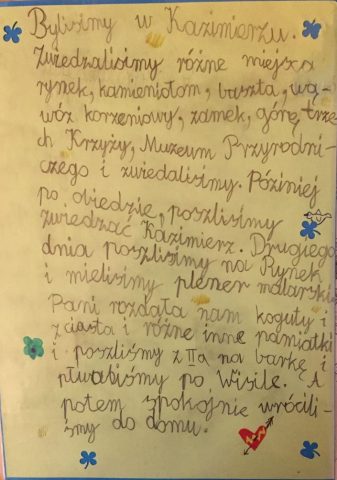 Byliśmy w Kazimierzu.
Zwiedzaliśmy różne miejsza
rynek, kamieniołom, baszta, wą-
wóz korzeniowy, zamek, górę trze-
ch Krzyży, Muzeum Przyrodni-
czego i zwiedaliśmy. Póżiniej
po obiedzie, poszliśmy
zwiedzać Kazimierz. Drugiego
dnia poszliśmy na Rynek
i mieliśmy plener malarski
Pani rozdała nam koguty i
z ciasta i różne inne pamiątki
i poszliśmy z IIa na barkę i
pływabiśmy po Wiśle. A
potem spokojnie wrócili-
śmy do domu.